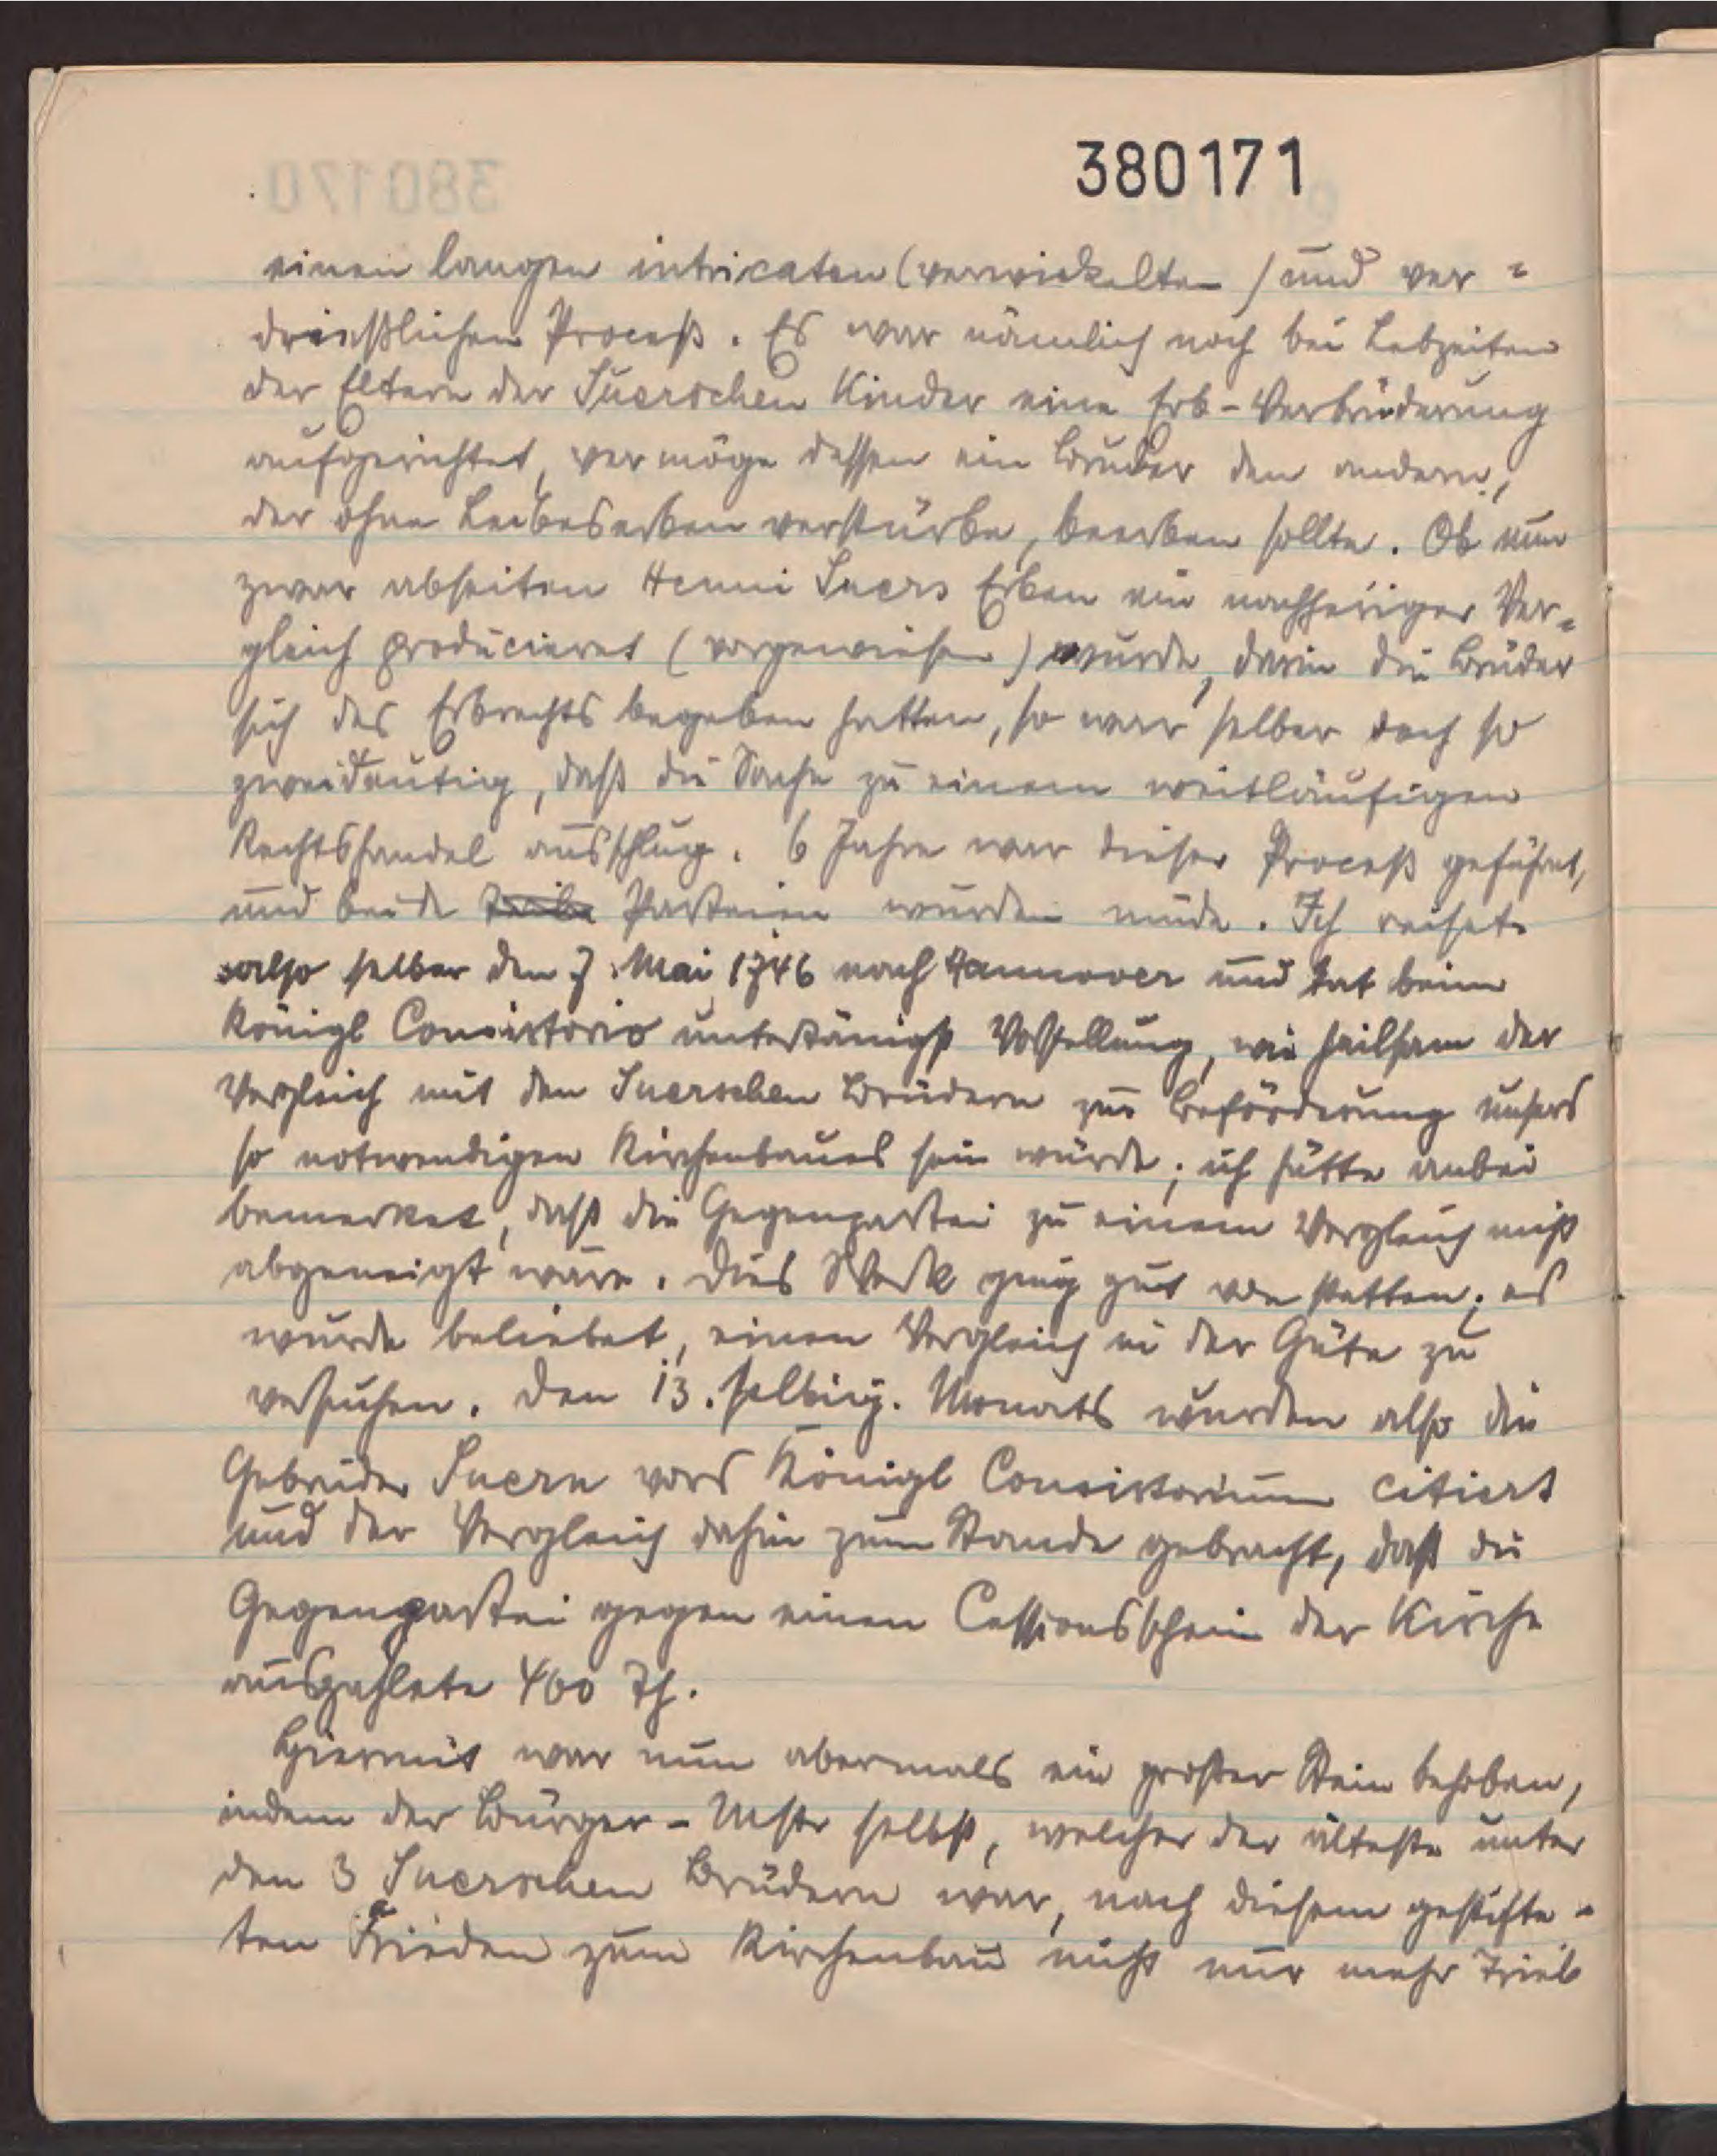 380171
einen langen intricaten (verwickelten) und ver=
drießlichen Proceß. Es war nämlich noch bei Lebzeiten
der Eltern der Suerschen Kinder eine Erb-Verbrüderung
aufgerichtet, vermöge dessen ein Bruder den andern,
der ohne Leibeserben verstürbe, beerben sollte. Ob nun
zwar abseiten Henni Suers Erben ein nachheriger Ver=
gleich producieret (vorgewiesen) wurde, darin die Brüder
sich des Erbrechts begeben hatten, so war selber doch so
zweideutig, daß die Sache zu einem weitläufigen
Rechtshandel ausschlug. 6 Jahre war dieser Proceß geführet,
und beide Teile Parteien wurden müde. Ich reisete
also selber den 7. Mai 1746 nach Hannover und tat beim
Königl Consistorio untertänigst Vorstellung, wie heilsam der
Vergleich mit den Suerschen Brüdern zur Beförderung unsers
so notwendigen Kirchenbaues sein würde; ich hätte anbei
bemerket, daß die Gegenpartei zu einem Vergleich nicht
abgeneigt wäre. Dies Werk ging gut von statten; es
wurde beliebet, einen Vergleich in der Güte zu
versuchen. Den 13. selbig. Monats wurden also die
Gebrüder Suern vors Königl Consistorium citiert
und der Vergleich dahin zum Stande gebracht, daß die
Gegenpartei gegen einen Cessionsschein der Kirche
auszahlete 400 Th.
Hiermit war nun abermals ein großer Stein behoben,
indem der Bürger-Mstr selbst, welcher der älteste unter
den 3 Suerschen Brüdern war, nach diesem gestifte-
ten Frieden zum Kirchenbau nicht nur mehr Trieb